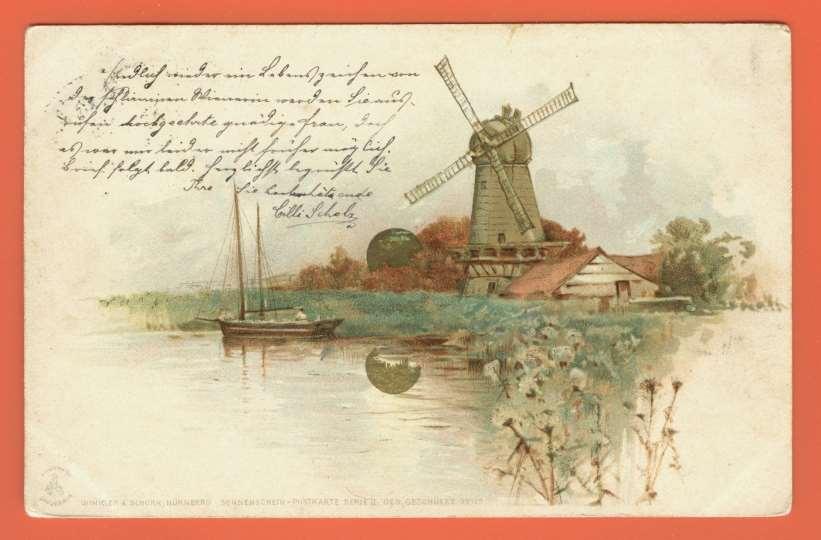 Endlich wieder ein Lebenszeichen von
der Wienerin werden Sie aus-
rufen hochgeehrte gnädige Frau, doch
es war mir leider nicht früher möglich.
Brief folgt bald. Herzlichst begrüßt Sie
Ihre Sie
Cilli Scholz
WINKLER & SCHORN, NÜRNBERG SONNENSCHEIN-POSTKARTE SERIE II. GES. GESCHÜTZT